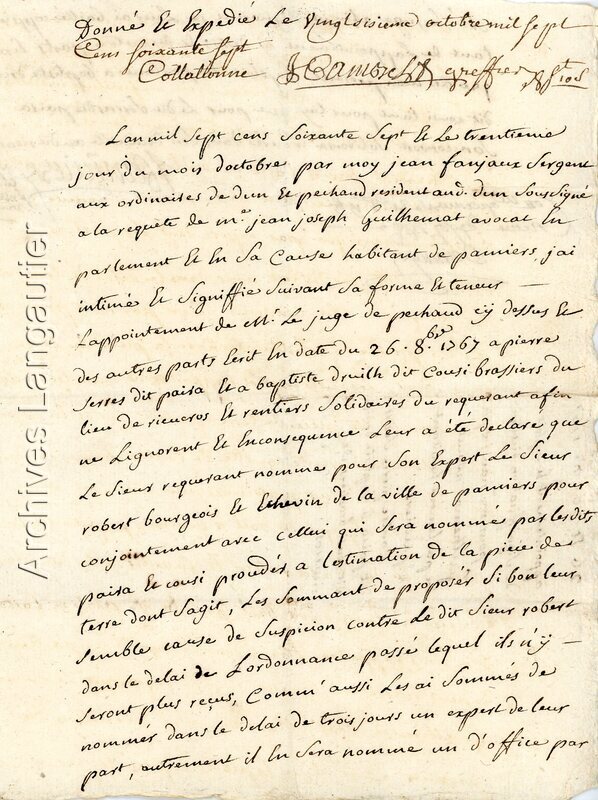 Donné Et Expedié Le vingtsisieme octobre mil sept
Cens soixante sept
Collationné greffier
Lan mil sept cens soixante sept Et Le trentieme
jour du mois doctobre par moy jean fanjaux sergent
aux ordinaires de dun Et pechaud resident aud. dun soussigné
a la requete de me. jean joseph Guilhemat avocat En
parlement Et En sa Cause habitant de pamiers, j'ai
intimé Et signiffié suivant sa forme Et teneur —
Lappointement de Mr. Le juge de pechaud cy dessus Et
des autres parts Ecrit En date du 26. 8.bre 1767 a pierre
serres dit paira Et a baptiste druilh dit Cousi brassiers du
lieu de rieucros Et rentiers solidaires du requerant afin
ne Lignorent Et Enconsequence Leur a été declare que
Le sieur requerant nomme pour son Expert Le sieur
robert bourgeois Et Echevin de la ville de pamiers pour
conjointement avec cellui qui sera nommé par lesdits
paira Et cousi proceder a lestimation de la piece de
terre dont sagit, Les sommant de proposér si bon leur
semble cause de suspicion contre Le dit sieur robert
dans le delai de Lordonnance passé lequel ils n'y —
seront plus reçus, Comm' aussi Les ai sommés de
nommér dans le delai de trois jours un expert de leur
part, autrement il En sera nommé un d'office par
Archives Langautier